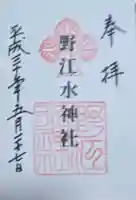 奉拝
野江水神社
平成三十年五月二十七日